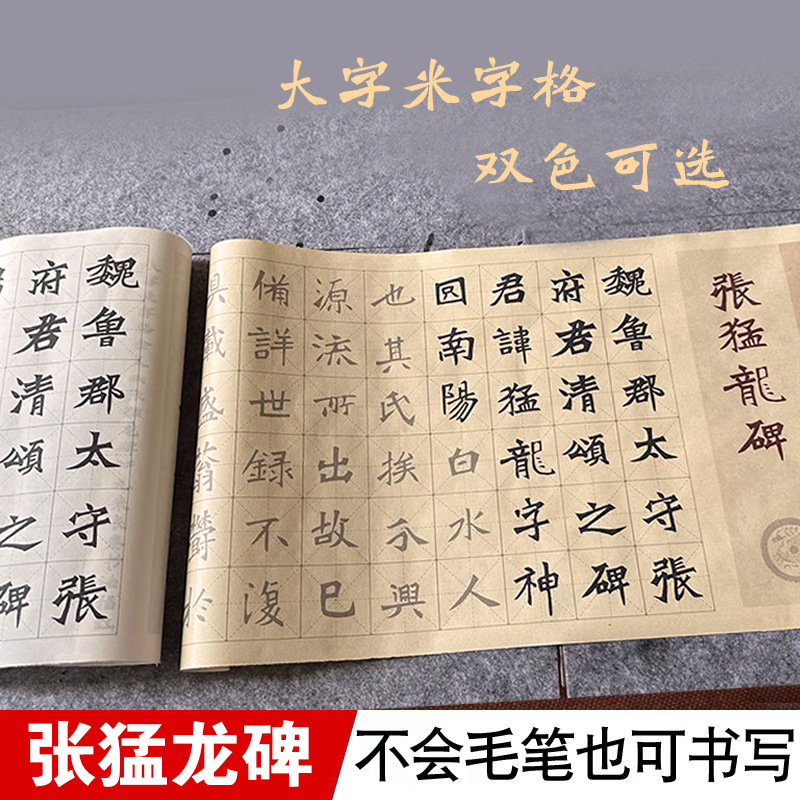 大字米字格
双色可选
張猛龍碑
魏魯郡太守張
府君清頌之碑
君諱猛龍字神
囙南陽白水人
也其氏挨分興
源流所出故巳
備詳世録不復
具載盛蓊鬱於
魏魯郡太守張
府君清頌之碑
张猛龙碑
不会毛笔也可书写